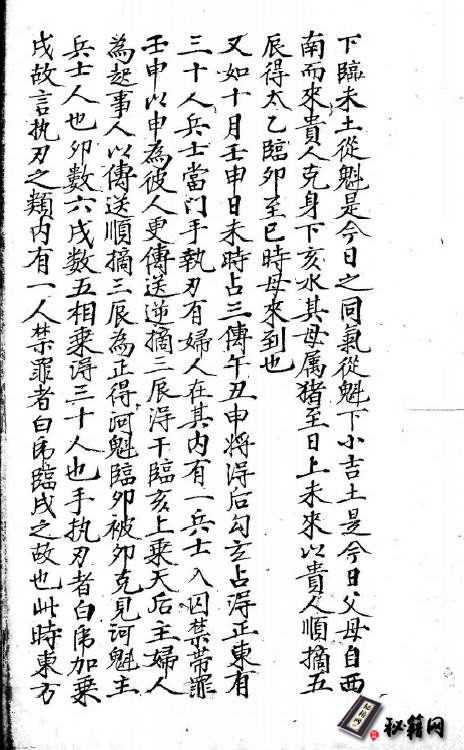 下臨未土從魁是今日之同氣從魁下小吉土是今日父母自西
南而來貴人克身下亥水其母属猪至日上未來以貴人順摘五
辰得太乙臨卯至巳時母來到也
又如十月壬申日未時占三傳午丑申将得后勾玄占得正東有
三十人兵士當门手執刃有婦人在其内有一兵士入囚禁帯罪
壬申以申為彼人更傳送逆摘三辰得干臨亥上乘天后主婦人
為起事人以傳送順摘三辰為正得河魁臨卯被卯克見河魁主
兵士人也卯数六戌数五相乘得三十人也手执刃者白虎加乗
戌故言执刃之類内有一人禁罪者白虎臨戌之故也此時東方
秘籍网